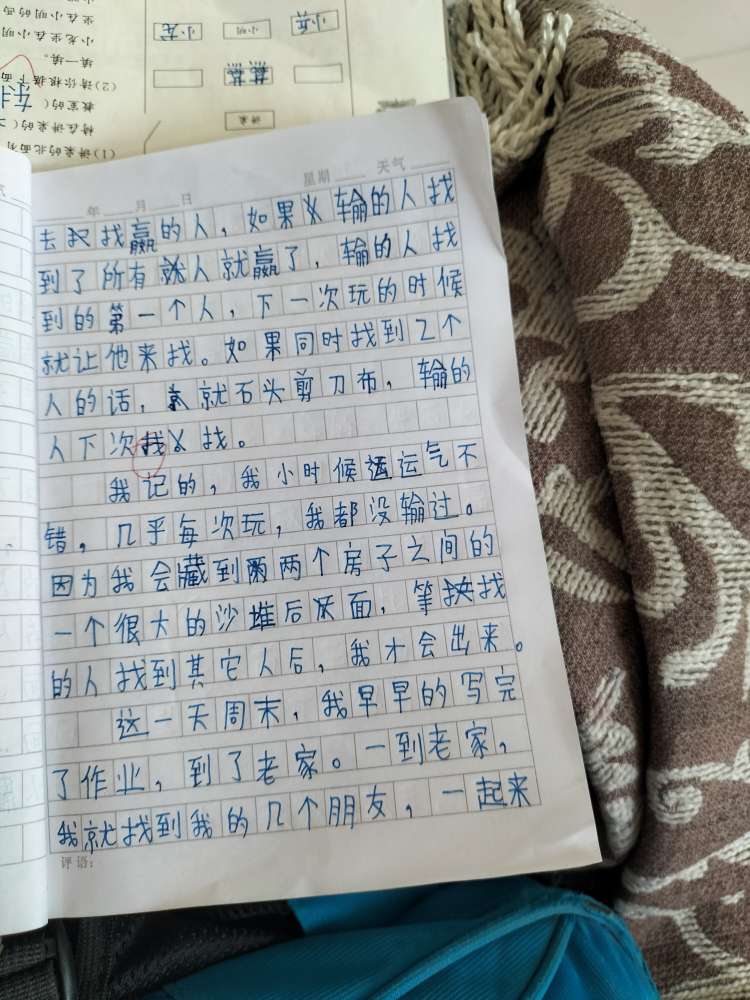 小兵
小龙
小明
讲桌
(1)讲桌的北面有
教室的(
(2)请你根据下面
填一填。
小龙坐在小明
坐在小明的西
年 月 日 星期 天气
去找赢的人,如果输的人找
到了所有人就赢了,输的人找
到的第一个人,下一次玩的时候
就让他来找。如果同时找到2个
人的话,就石头剪刀布,输的
人下次找。
我记的,我小时候运气不
错,几乎每次玩,我都没输过。
因为我会藏到两个房子之间的
一个很大的沙堆后面,等找
的人找到其它人后,我才会出来。
这一天周末,我早早的写完
了作业,到了老家。一到老家,
我就找到我的几个朋友,一起来
评语: